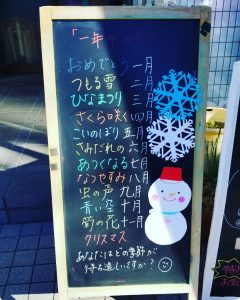 「一年中の
おめでとう一月
つもる雪 二月
ひなまつり 三月
さくら咲く四月
こいのぼり五月
さみだれの六月
あつくなる七月
なつやすみ八月
虫の声 九月
青い空 十月
菊の花十一月
クリスマス
あなたはどの季節が
待ち遠しいですか?